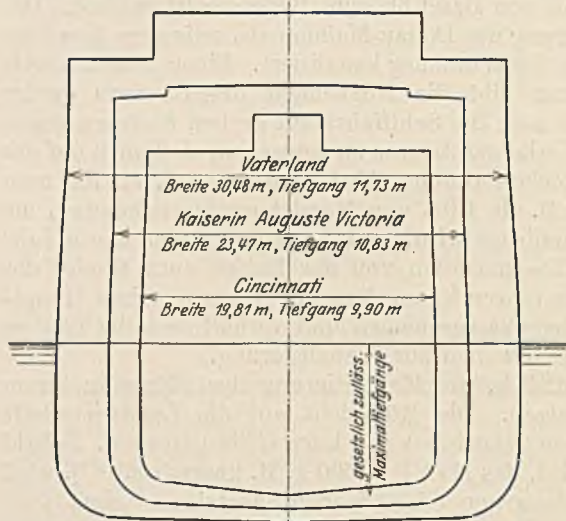 Vaterland
Breite 30,48 m, Tiefgang 11,73 m
Kaiserin Auguste Victoria
Breite 23,47 m, Tiefgang 10,83 m
Cincinnati
Breite 19,81 m, Tiefgang 9,90 m
gesetzlich zuläss
Maximaltiefgänge